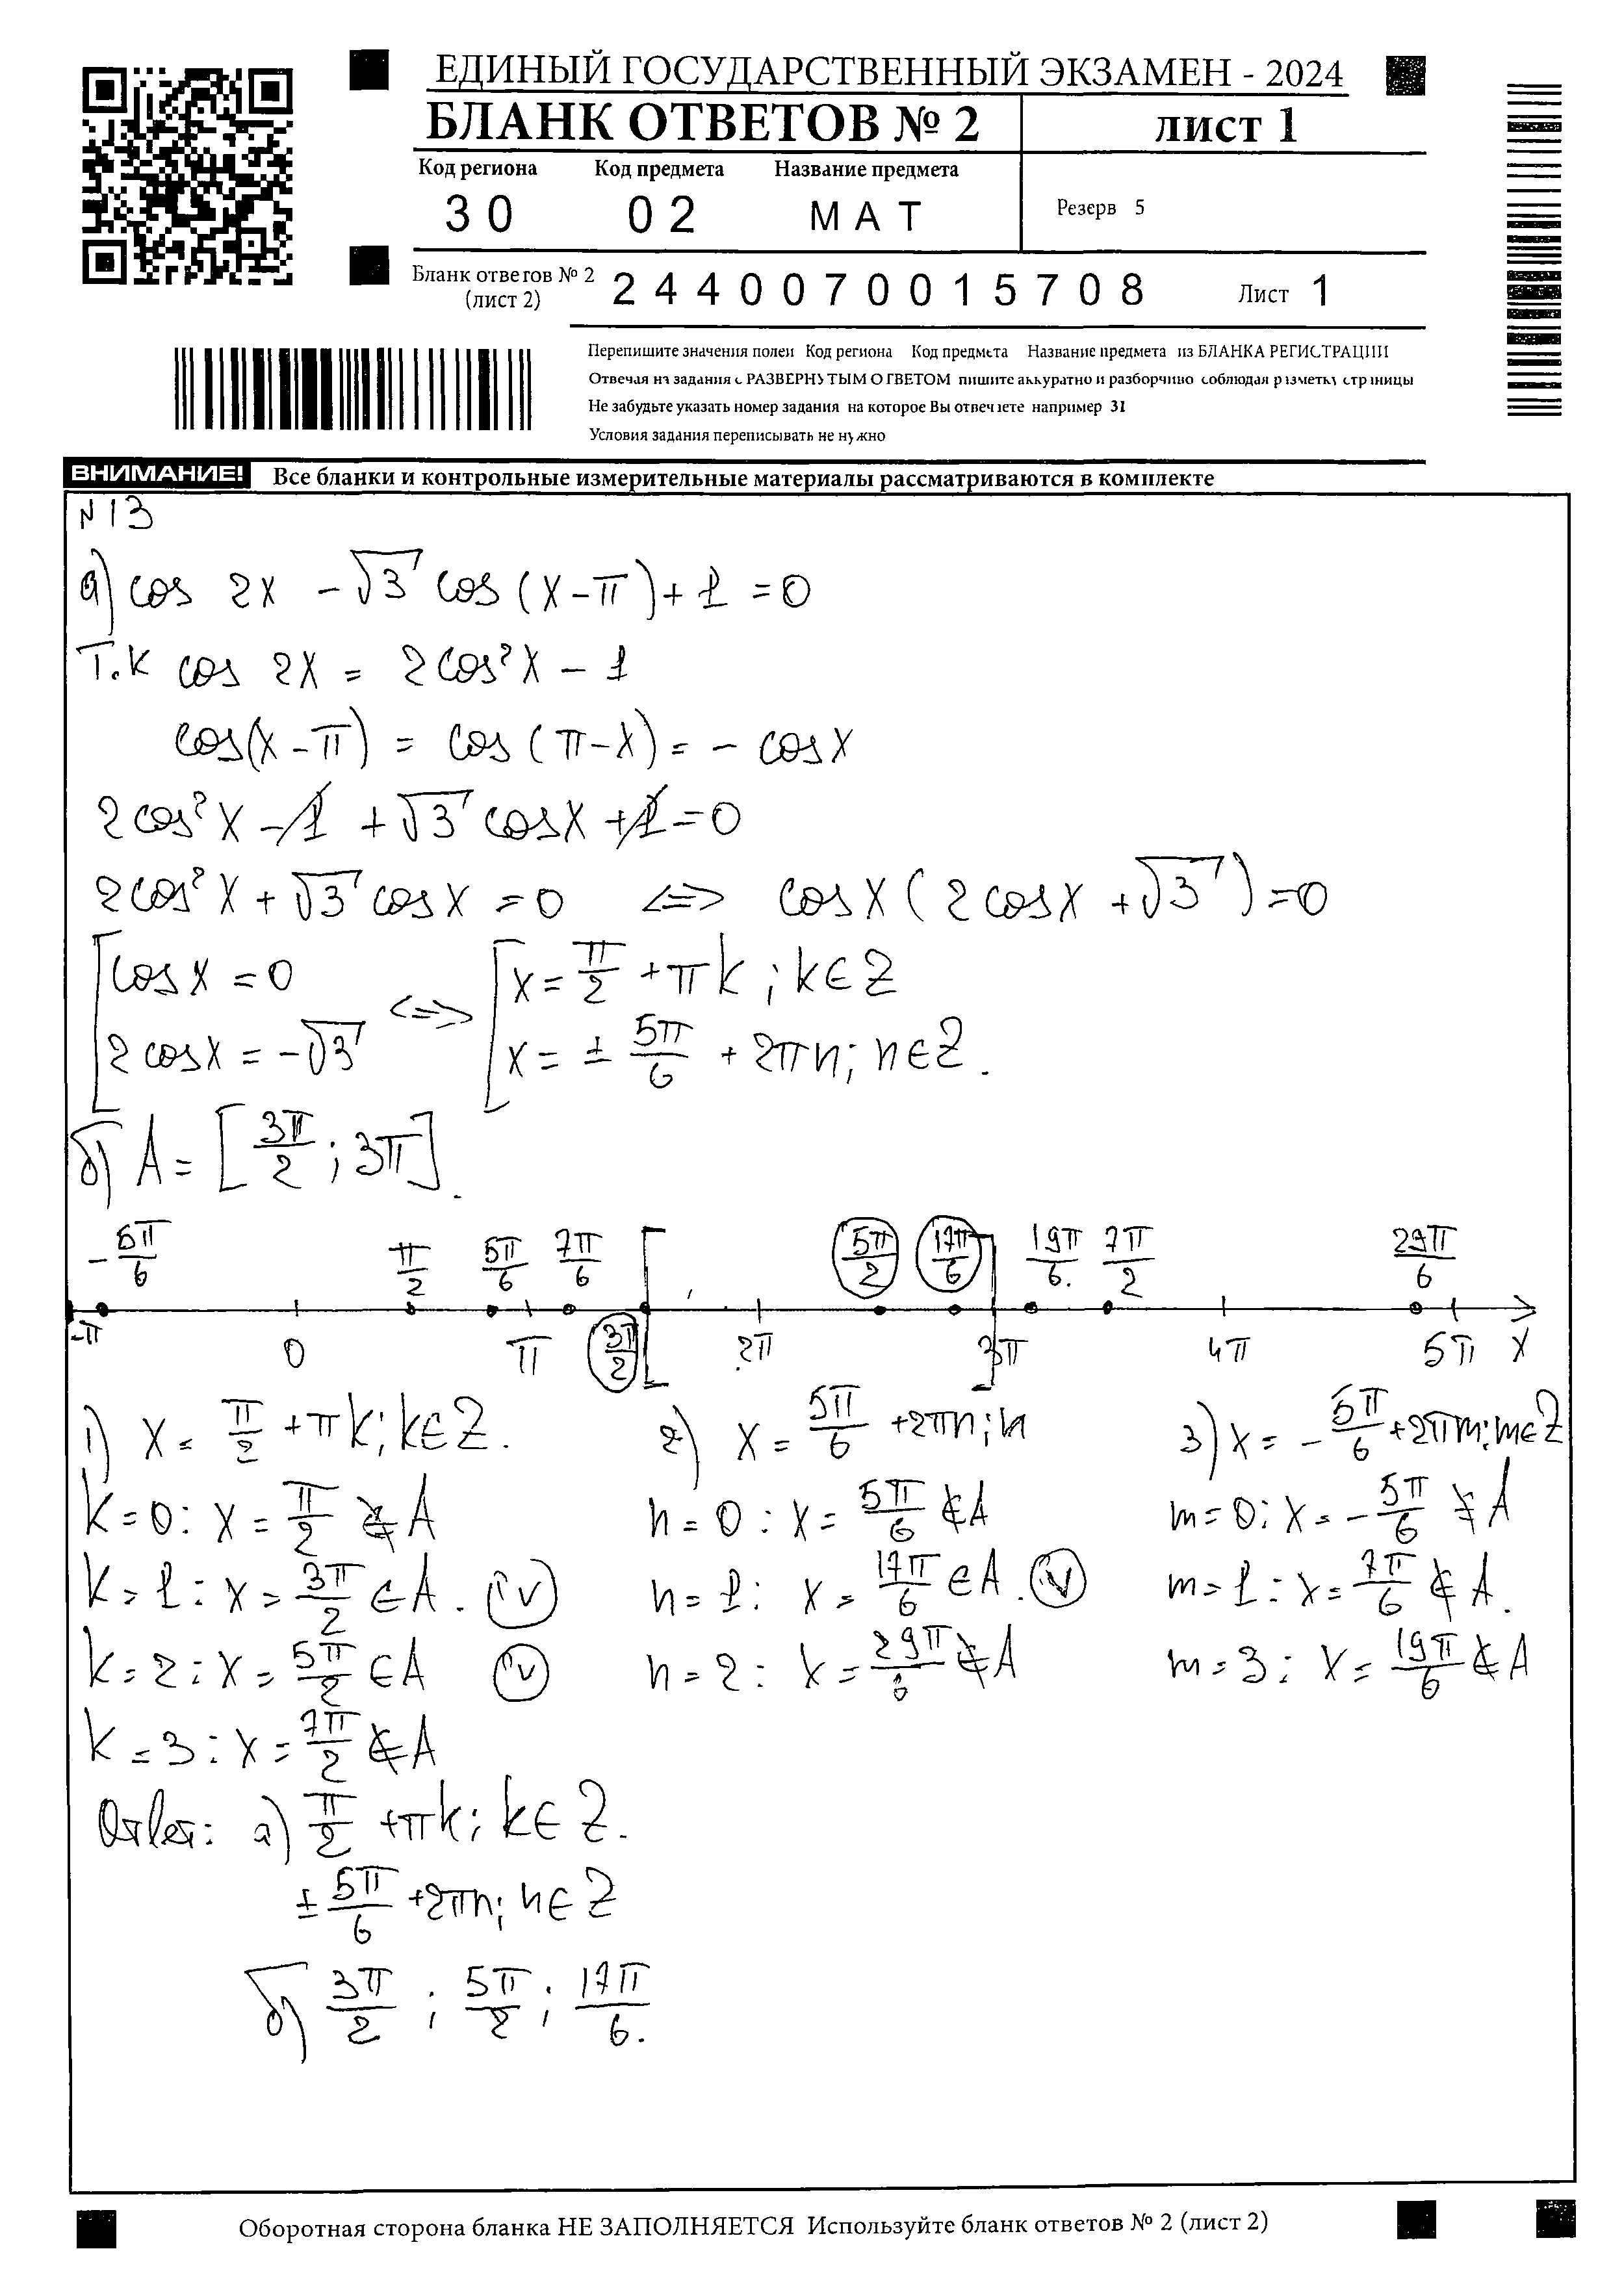 ЕДИНЫЙ ГОСУДАРСТВЕННЫЙ ЭКЗАМЕН - 2024
БЛАНК ОТВЕТОВ № 2 лист 1
Код региона Код предмета Название предмета
30 02 МАТ Резерв 5
Бланк ответов № 2 (лист 2) 2440070015708 Лист 1
Перепишите значения полей Код региона Код предмета Название предмета из БЛАНКА РЕГИСТРАЦИИ
Отвечая на задания с РАЗВЕРНУТЫМ ОТВЕТОМ пишите аккуратно и разборчиво соблюдая разметку страницы
Не забудьте указать номер задания на которое Вы отвечаете например 31
Условия задания переписывать не нужно
ВНИМАНИЕ! Все бланки и контрольные измерительные материалы рассматриваются в комплекте
№13
а) cos 2x - √3 cos (x-π) + 1 = 0
Т.к cos 2x = 2cos²x - 1
cos(x-π) = cos(π-x) = - cosx
2cos²x - 1 + √3 cosx + 1 = 0
2cos²x + √3 cosx = 0 <=> cosx (2cosx + √3) = 0
[ cosx = 0 <=> [ x = π/2 + πk; k∈Z
[ 2cosx = -√3 [ x = ± 5π/6 + 2πn; n∈Z.
б) A = [3π/2; 3π].
-5π/6 π/2 5π/6 7π/6 [ 5π/2 17π/6 ] 19π/6. 7π/2 29π/6
-π 0 π 3π/2 2π 3π 4π 5π x
1) x = π/2 + πk; k∈Z. 2) x = 5π/6 + 2πn; n 3) x = -5π/6 + 2πm; m∈Z
k=0: x = π/2 ∉ A n=0: x = 5π/6 ∉ A m=0: x = -5π/6 ∉ A
k=1: x = 3π/2 ∈ A. (v) n=1: x = 17π/6 ∈ A. (v) m=1: x = 7π/6 ∉ A.
k=2: x = 5π/2 ∈ A (v) n=2: x = 29π/6 ∉ A m=3: x = 19π/6 ∉ A
k=3: x = 7π/2 ∉ A
Ответ: а) π/2 + πk; k∈Z.
± 5π/6 + 2πn; n∈Z
б) 3π/2; 5π/2; 17π/6.
Оборотная сторона бланка НЕ ЗАПОЛНЯЕТСЯ Используйте бланк ответов № 2 (лист 2)